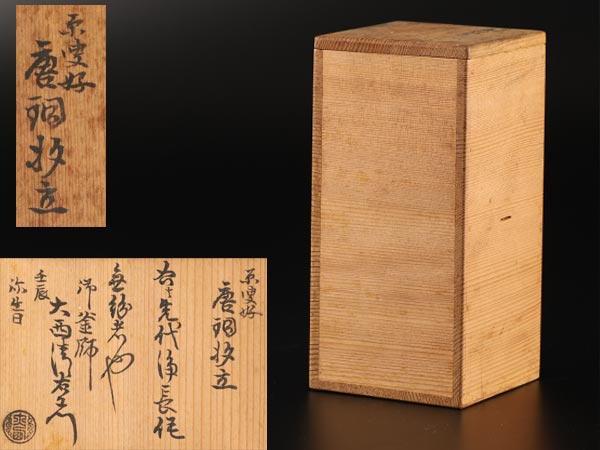 原叟好
唐銅杓立
原叟好
唐銅杓立
右者先代浄長作
無紛者也
御釜師
大西清右衛門
壬辰
弥生日